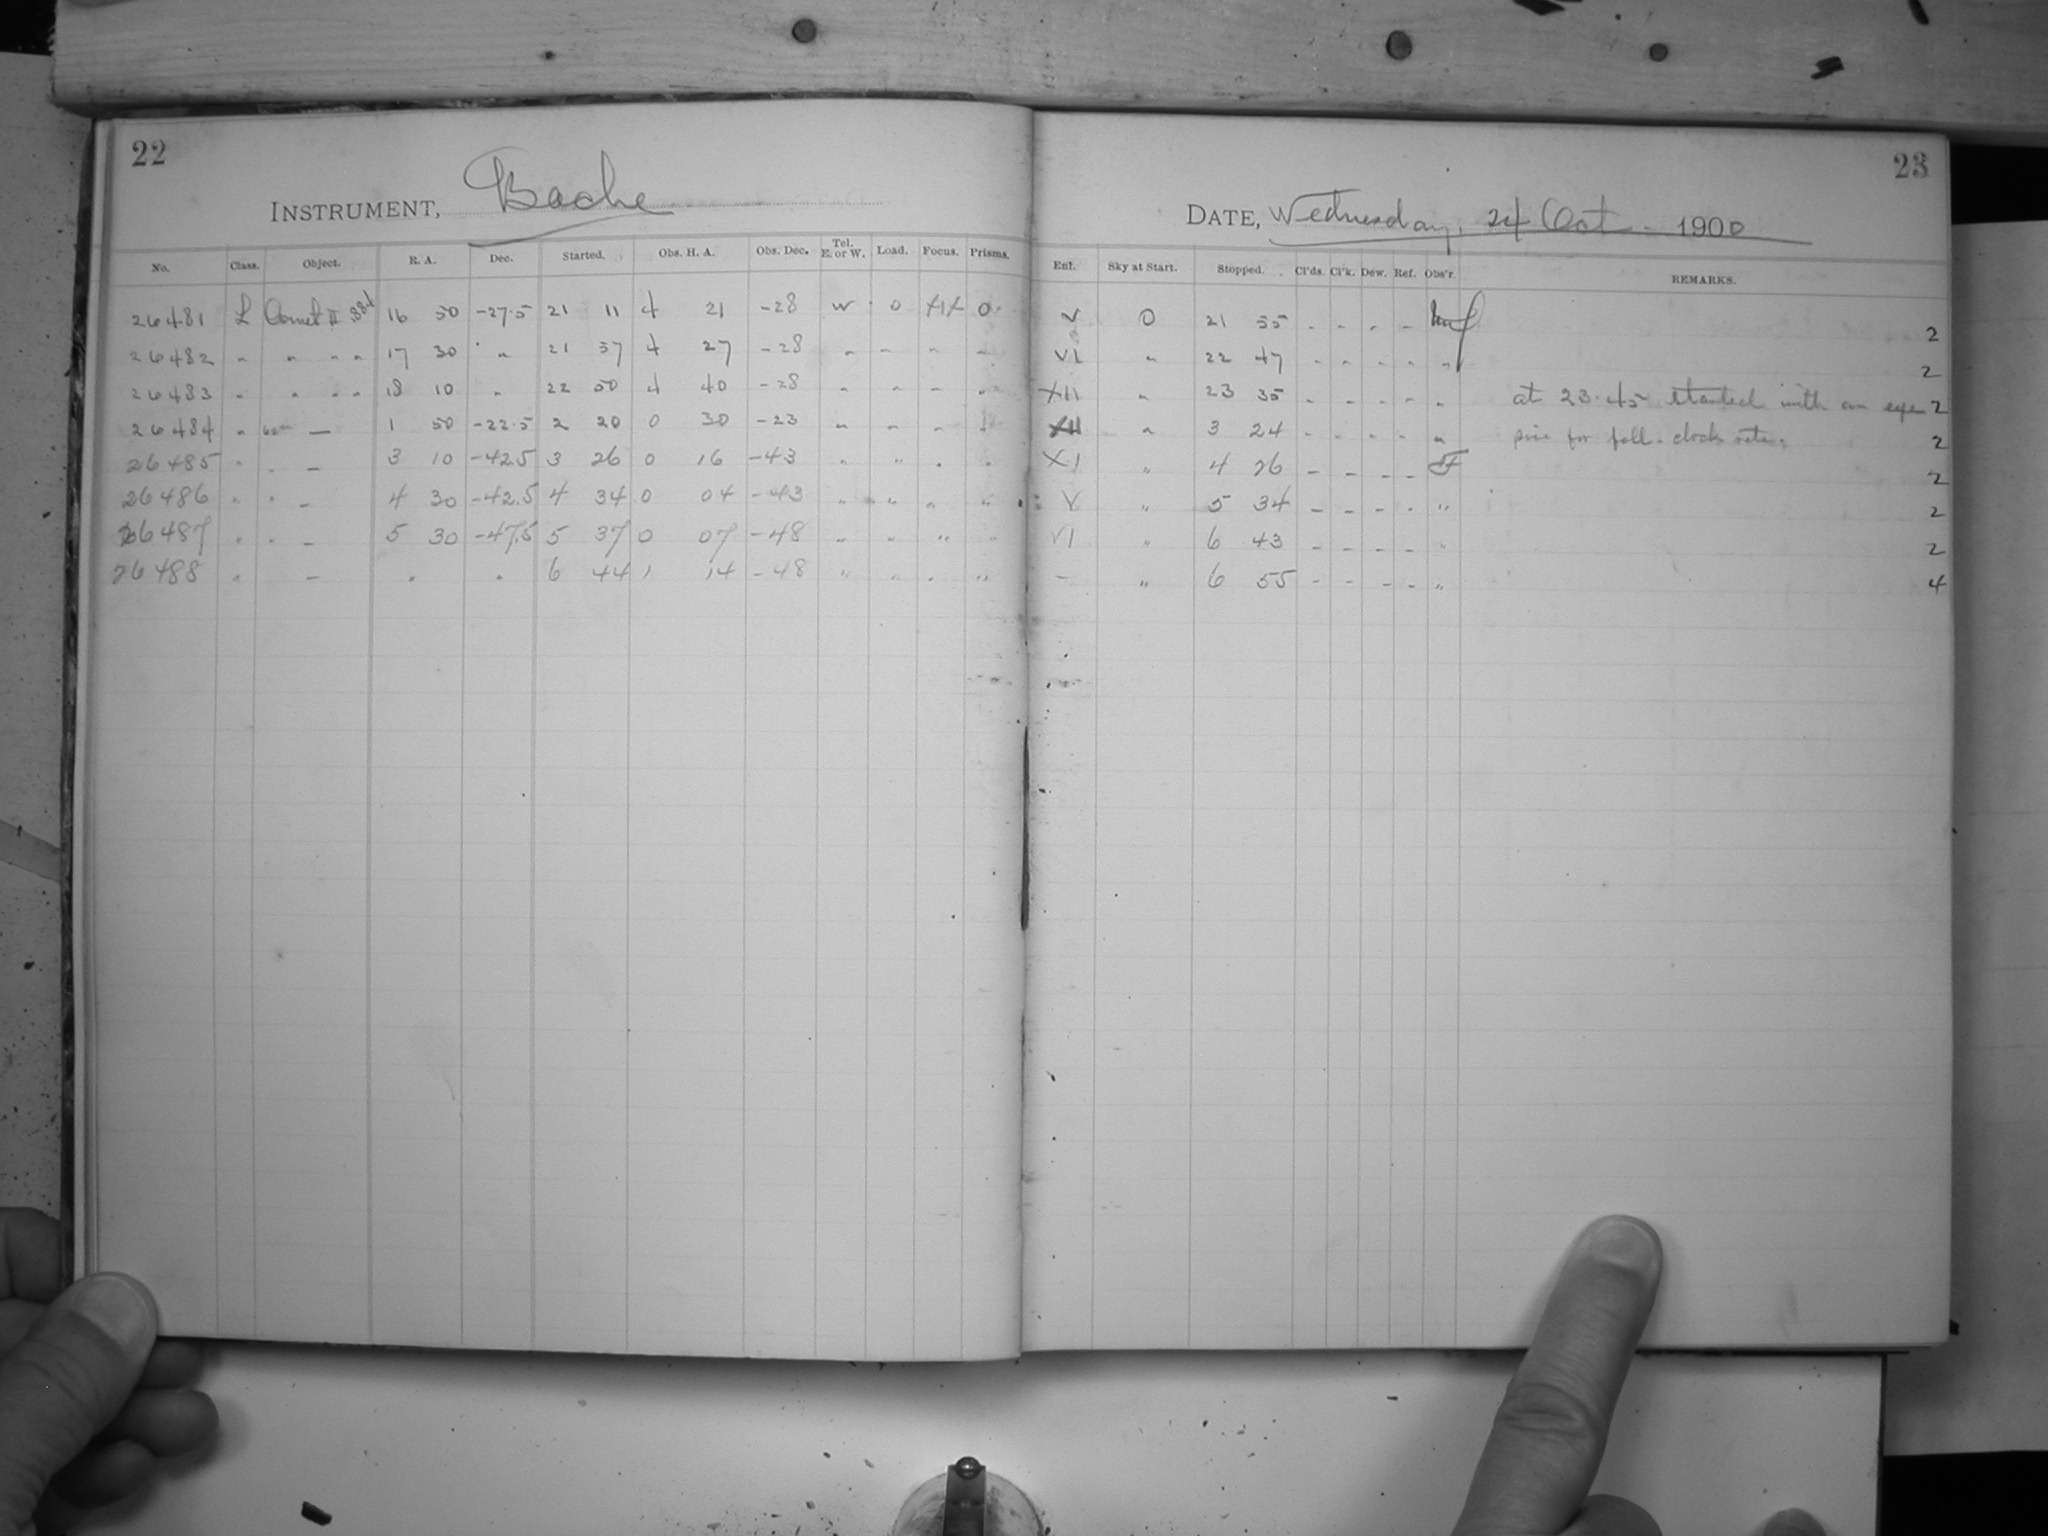 22
INSTRUMENT, Bache
No. Class. Object. R. A. Dec. Started. Obs. H. A. Obs. Dec. Tel. E. or W. Load. Focus. Prisms.
26481 L Comet II 1884 16 50 -27.5 21 11 4 21 -28 W 0 0
26482 " " " " 17 30 " 21 57 4 27 -28 " " " "
26483 " " " " 18 10 " 22 50 4 40 -28 " " " "
26484 " 60m — 1 50 -22.5 2 20 0 30 -23 " " "
26485 " " — 3 10 -42.5 3 26 0 16 -43 " " " "
26486 " " — 4 30 -42.5 4 34 0 04 -43 " " " "
26487 " " — 5 30 -47.5 5 37 0 07 -48 " " " "
26488 " — " " 6 44 1 14 -48 " " " "
23
DATE, Wednesday, 24 Oct. 1900
Enf. Sky at Start. Stopped. Cl'ds. Cl'k. Dew. Ref. Obs'r. REMARKS.
V 0 21 55 - - - - 2
VI " 22 47 - - - - " 2
XII " 23 35 - - - - " at 23.45 started with an expo 2
XII " 3 24 - - - - " sure for foll. clock rate. 2
XI " 4 26 - - - - F 2
V " 5 34 - - - - " 2
VI " 6 43 - - - - " 2
— " 6 55 - - - - " 4